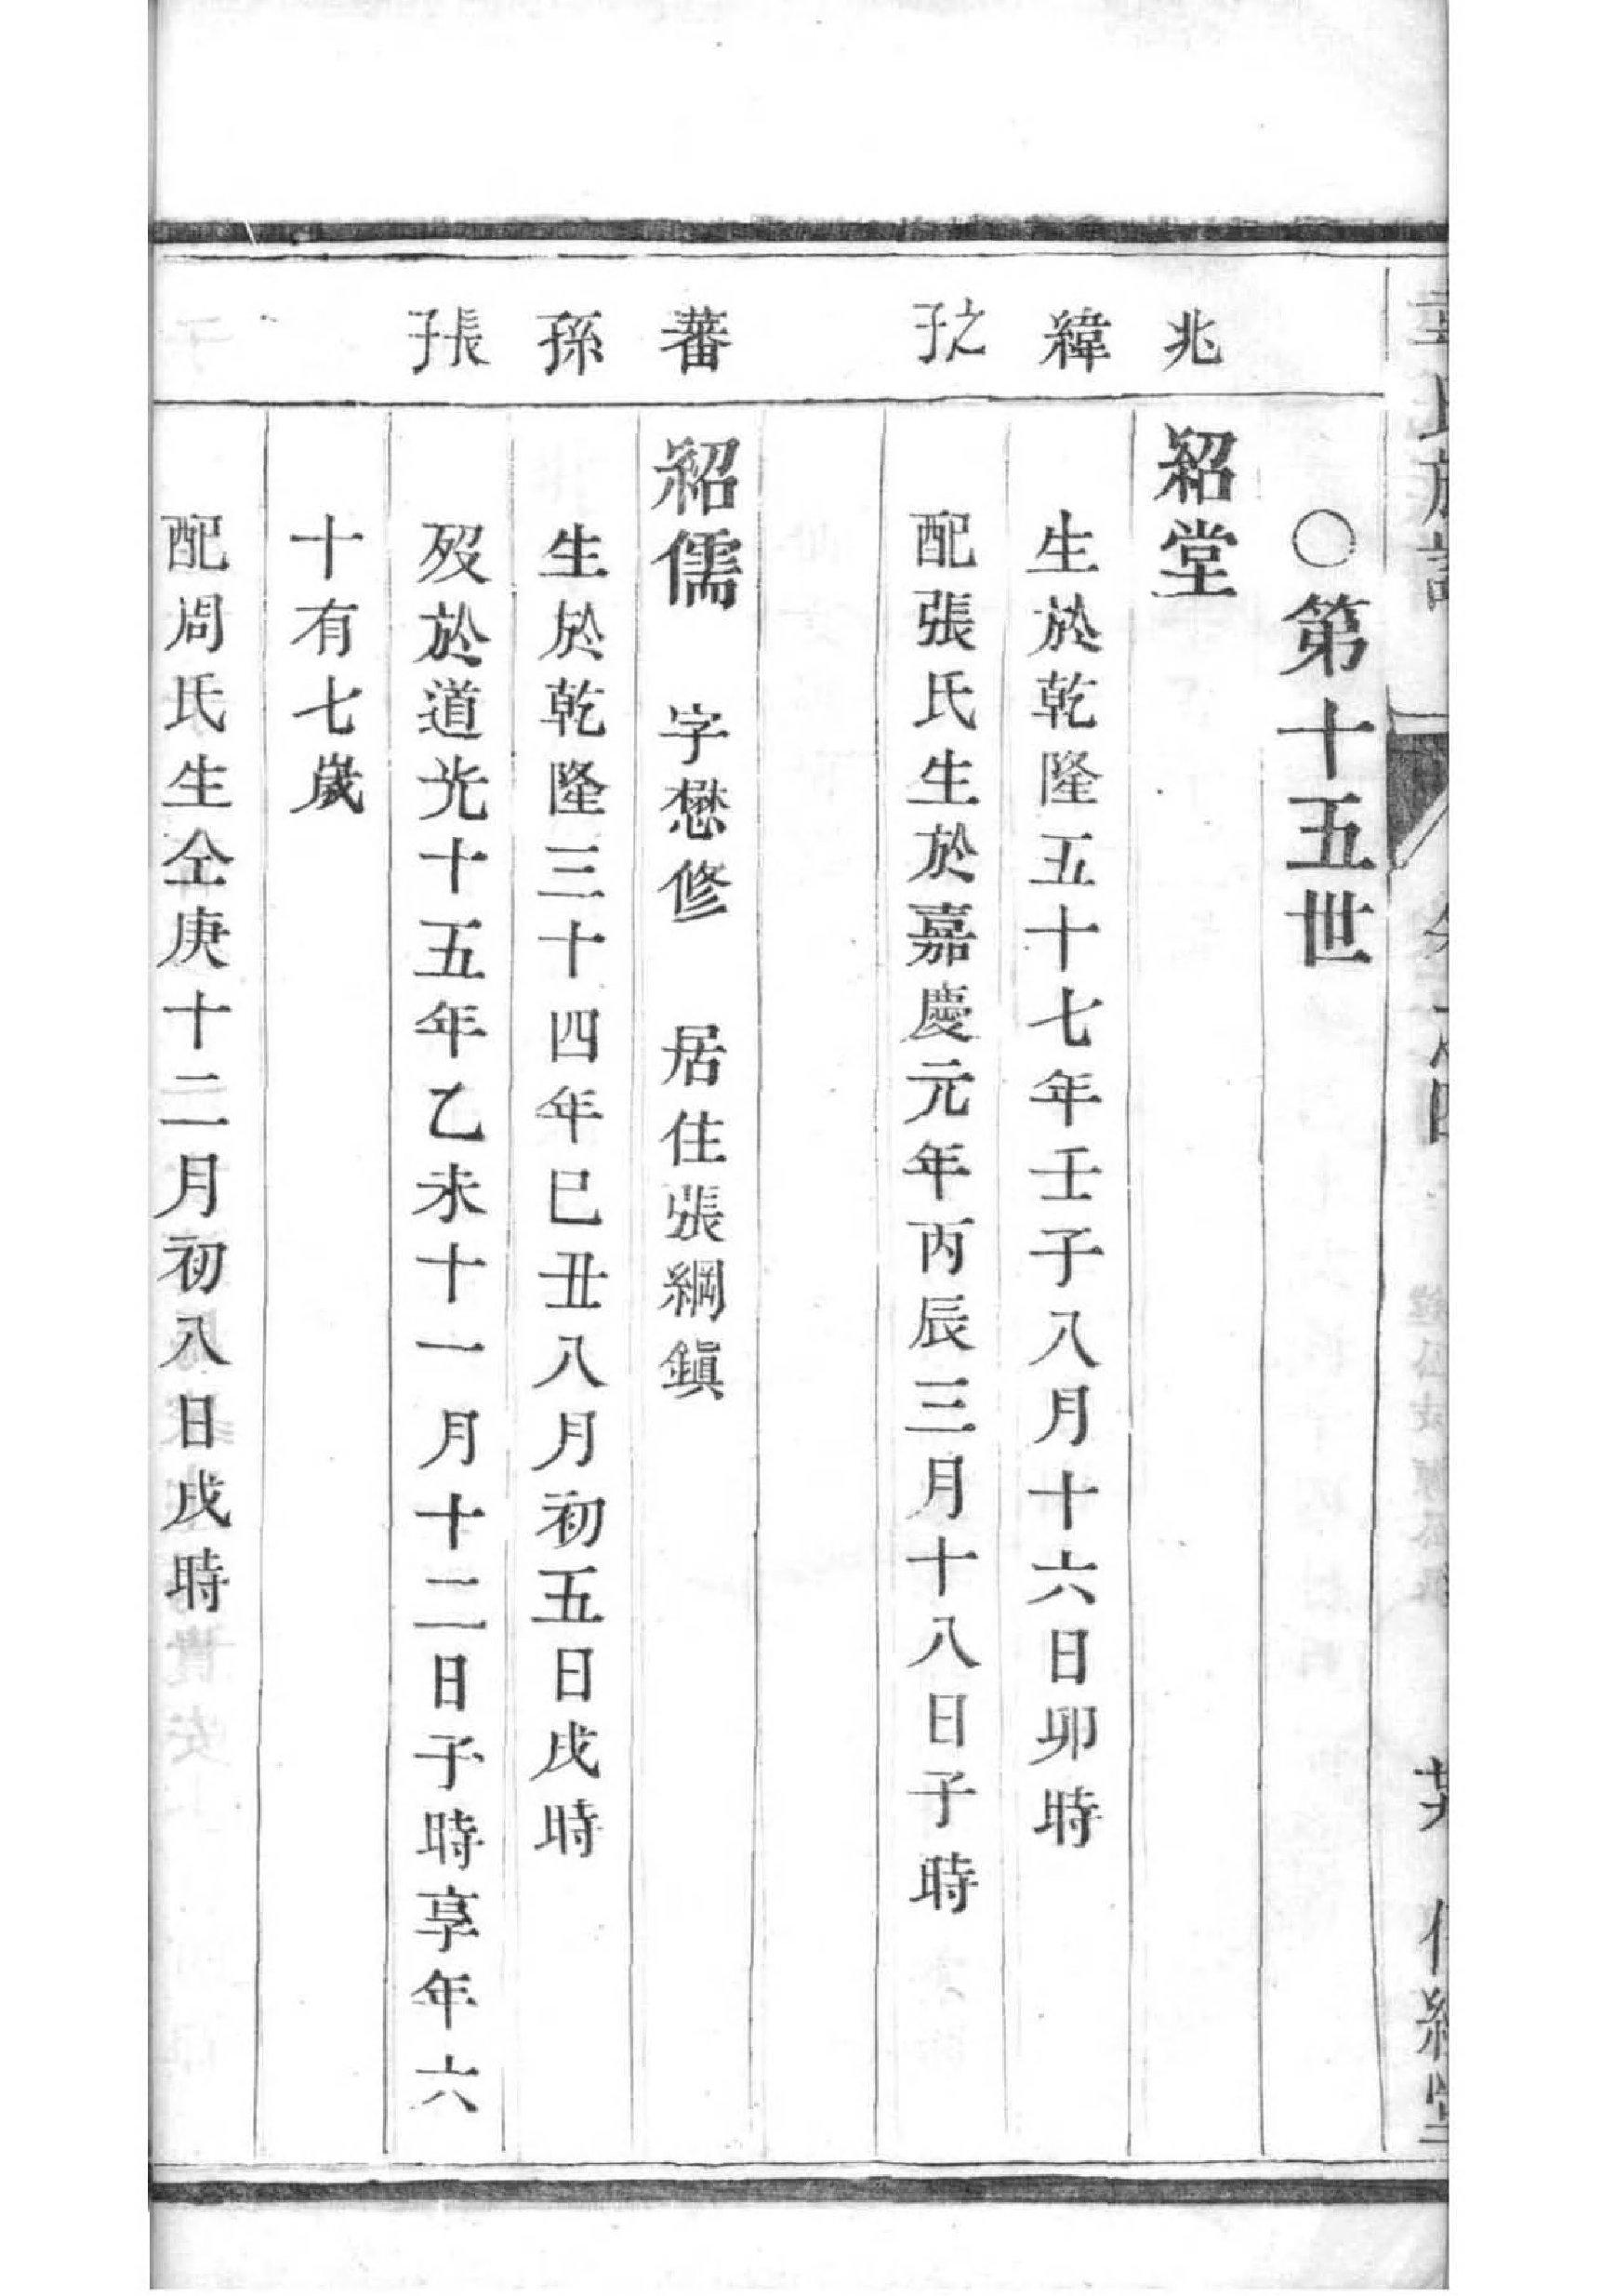 〇第十五世
兆 紹堂
緯 生於乾隆五十七年壬子八月十六日卯時
之子 配張氏生於嘉慶元年丙辰三月十八日子時
蕃 紹儒 字懋修 居住張綱鎮
孫 生於乾隆三十四年巳丑八月初五日戌時
張子 歿於道光十五年乙未十一月十二日子時享年六
十有七歲
配周氏生仝庚十二月初八日戌時